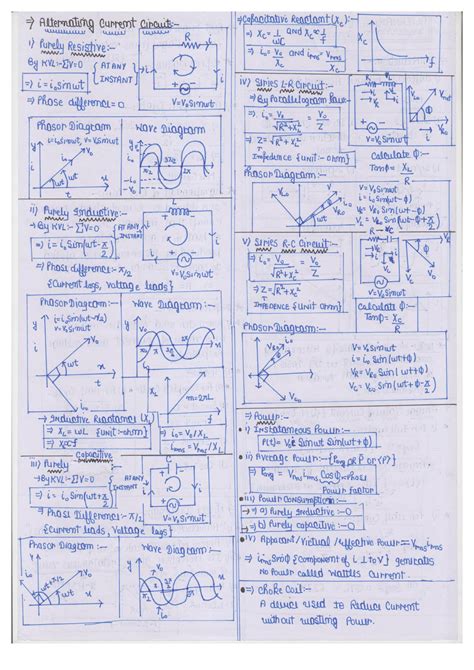 ⇒ Alternating Current Circuit:-
i) Purely Resistive:-
By KVL:- ΣV=0 {AT ANY INSTANT}
⇒ i = i₀Sinωt
⇒ Phase difference = 0
R
i
V=V₀Sinωt
Phasor Diagram
i=i₀Sinωt, V=V₀Sinωt
y
i
i₀
V₀
ωt
x
Wave Diagram
ii) Purely Inductive:-
By KVL:- ΣV=0 {AT ANY INSTANT}
⇒ i = i₀Sin(ωt-π/2)
⇒ Phase difference:- π/2
{Current lags, Voltage leads}
L
i
V=V₀Sinωt
Phasor Diagram:-
i=i₀Sin(ωt-π/2)
V=V₀Sinωt
y
V₀
ωt
x
i₀
Wave Diagram:-
X_L
m=2πL
f
⇒ Inductive Reactance (X_L)
⇒ X_L = ωL {unit-ohm}
⇒ X_L∝f
i₀ = V₀/X_L
i_rms = V_rms/X_L
iii) Purely Capacitive
⇒ By KVL:- ΣV=0 {AT ANY INSTANT}
⇒ i = i₀Sin(ωt+π/2)
⇒ Phase Difference:- π/2
{Current leads, Voltage lags}
C
i
V=V₀Sinωt
Phasor Diagram:-
i₀
V₀
ωt+π/2
ωt
x
Wave Diagram:-
⇒ Capacitative Reactant (X_C):-
⇒ X_C = 1/ωC and X_C∝1/f
⇒ i₀ = V₀/X_C and i_rms = V_rms/X_C
X_C
f
iv) Series L-R Circuit:-
⇒ By Parallelogram Law:-
⇒ i₀ = V₀/√R²+X_L² = V₀/Z
⇒ Z = √R²+X_L²
Impedence {unit-ohm}
Calculate Φ:-
TanΦ = X_L/R
Phasor Diagram:-
V=V₀Sinωt
v) Series R-C Circuit:-
⇒ i₀ = V₀/√R²+X_C² = V₀/Z
⇒ Z = √R²+X_C²
Impedence {unit ohm}
V=V₀Sinωt
Calculate Φ:-
TanΦ = X_C/R
Phasor Diagram:-
V = V₀Sinωt
i = i₀ Sin(ωt+Φ)
⇒ Power:-
i) Instantaneous Power:-
ii) Average Power:- {P_avg OR P or <P>}
⇒ P_avg = V_rms i_rms CosΦ
Power Factor
iii) Power Consumption:-
→ a) Purely Inductive :- 0
→ b) Purely capacitive :- 0
iv) Apparent/Virtual/effective Power = V_rms i_rms
⇒ i_rms SinΦ {Component of i ⊥ to V} generates
No Power called Wattles Current.
⇒ Choke Coil:-
A device used to Reduce Current
without wasting Power.